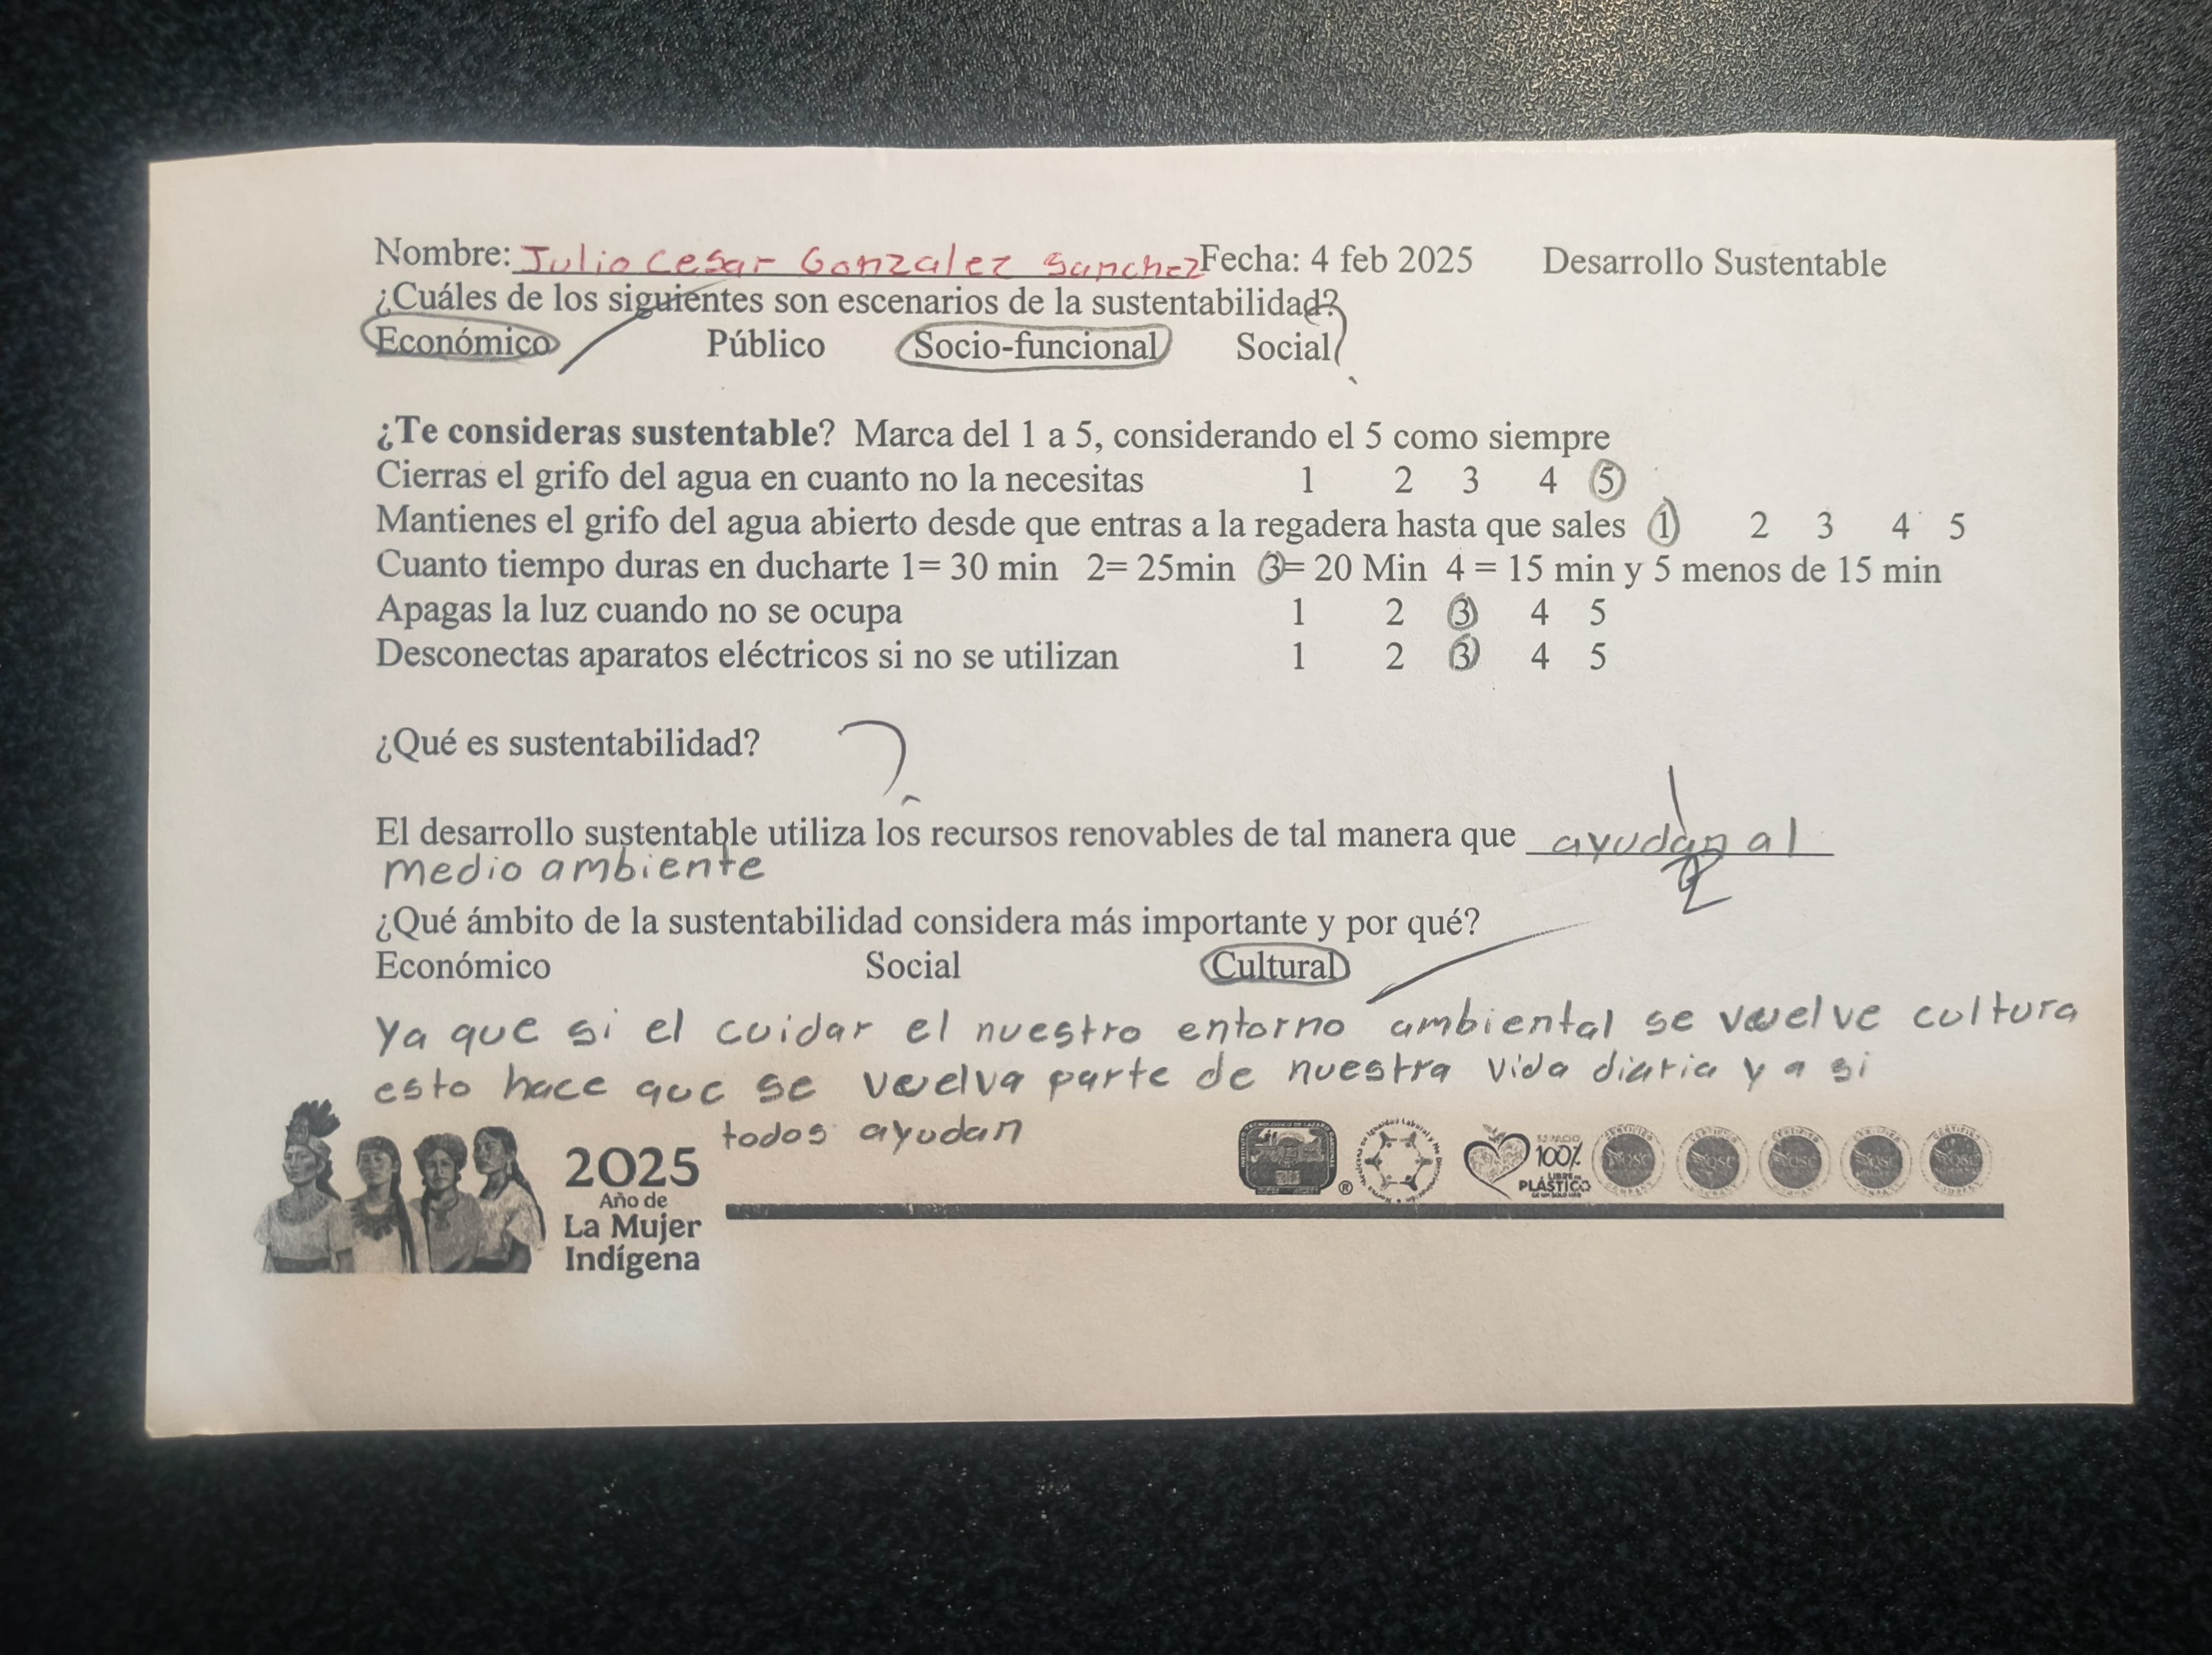 Nombre: Julio Cesar Gonzalez Sanchez Fecha: 4 feb 2025 Desarrollo Sustentable
¿Cuáles de los siguientes son escenarios de la sustentabilidad?
Económico Público Socio-funcional Social
¿Te consideras sustentable? Marca del 1 a 5, considerando el 5 como siempre
Cierras el grifo del agua en cuanto no la necesitas 1 2 3 4 5
Mantienes el grifo del agua abierto desde que entras a la regadera hasta que sales 1 2 3 4 5
Cuanto tiempo duras en ducharte 1= 30 min 2= 25min 3= 20 Min 4 = 15 min y 5 menos de 15 min
Apagas la luz cuando no se ocupa 1 2 3 4 5
Desconectas aparatos eléctricos si no se utilizan 1 2 3 4 5
¿Qué es sustentabilidad?
El desarrollo sustentable utiliza los recursos renovables de tal manera que ayudan al
medio ambiente
1/2
¿Qué ámbito de la sustentabilidad considera más importante y por qué?
Económico Social Cultural
Ya que si el cuidar el nuestro entorno ambiental se vuelve cultura
esto hace que se vuelva parte de nuestra vida diaria y a si
todos ayudan
2025
Año de
La Mujer
Indígena
ESPACIO
100%
LIBRE DE
PLÁSTICO
DE UN SOLO USO
®